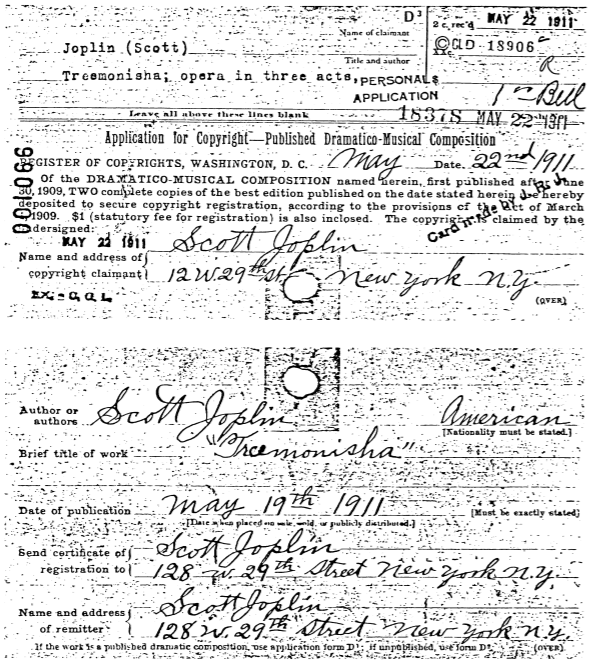 D³
Name of claimant
2 c. rec'd MAY 22 1911
Joplin (Scott)
© CLD 18906
XXc.
Title and author
R
Treemonisha; opera in three acts,
PERSONALS
APPLICATION
1 Bell
18378 MAY 22 1911
Leave all above these lines blank
Application for Copyright—Published Dramatico-Musical Composition
REGISTER OF COPYRIGHTS, WASHINGTON, D. C. May Date. 22nd 1911
Of the DRAMATICO-MUSICAL COMPOSITION named herein, first published after June
30, 1909, TWO complete copies of the best edition published on the date stated herein are hereby
deposited to secure copyright registration, according to the provisions of the Act of March
1909. $1 (statutory fee for registration) is also inclosed. The copyright is claimed by the
undersigned:
001066
Card made by
MAY 22 1911
Name and address of copyright claimant
Scott Joplin
12 W. 29th St. New York N.Y.
(OVER)
Author or authors
Scott Joplin
American
[Nationality must be stated.]
Brief title of work "Treemonisha"
Date of publication May 19th 1911 [Must be exactly stated]
[Date when placed on sale, sold, or publicly distributed.]
Send certificate of registration to
Scott Joplin
128 W. 29th Street New York N.Y.
Name and address of remitter
Scott Joplin
128 W. 29th Street New York N.Y.
If the work is a published dramatic composition, use application form D¹; if unpublished, use form D². (OVER)